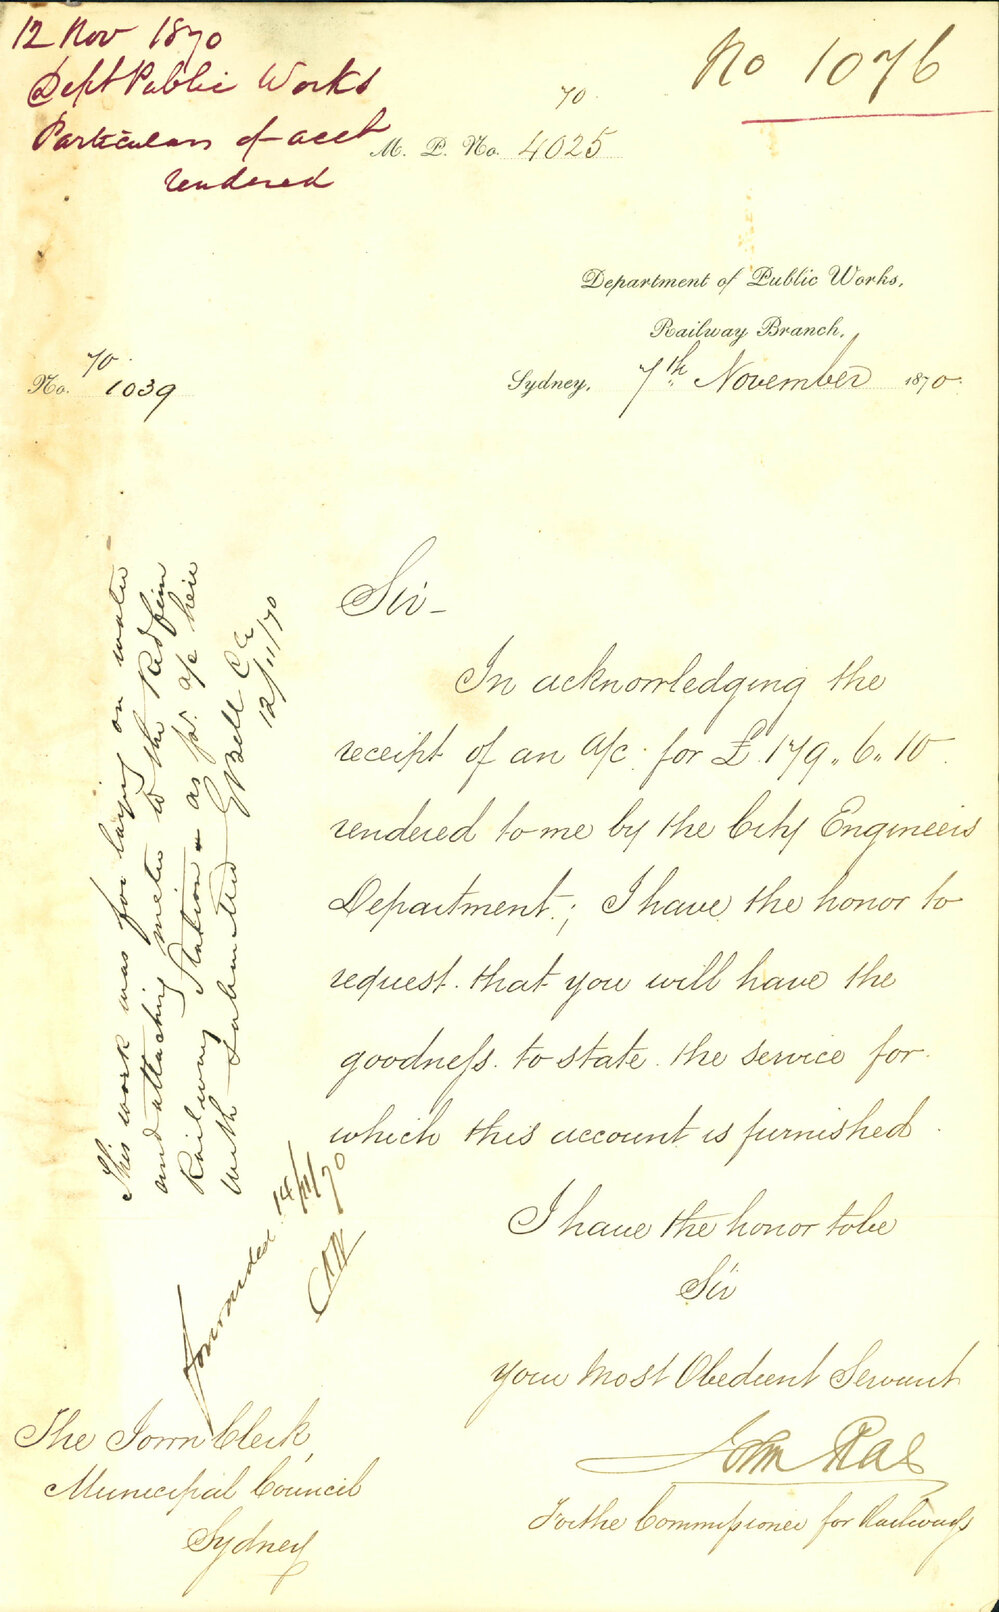 12 Nov 1870
Dept Public Works
Particulars of acct
rendered
No 1076
70
M. P. No. 4025
Department of Public Works,
Railway Branch,
Sydney, 7th November 1870
70
No. 1039
Sir –
In acknowledging the
receipt of an a/c. for £179„6„10
rendered to me by the City Engineers
Department; I have the honor to
request that you will have the
goodness to state the service for
which this account is furnished.
I have the honor to be
Sir
your Most Obedient Servant
John Rae
For the Commissioner for Railways
The Town Clerk
Municipal Council
Sydney
This work was for laying on water
and attaching meter to the Redfern
Railway Station as per a/c here
with submitted G Bell C E
12/11/70
Forwarded 14/11/70